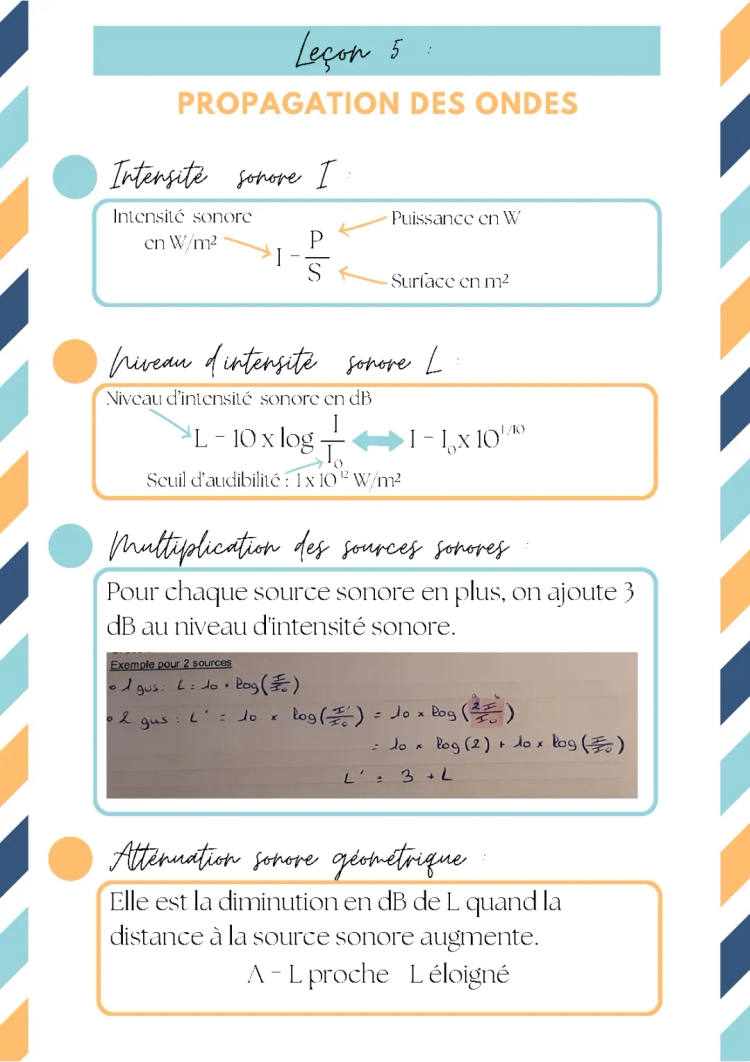 Leçon 5 :
PROPAGATION DES ONDES
Intensité sonore I :
Intensité sonore
en W/m²
I = P/S
Puissance en W
Surface en m²
Niveau d'intensité sonore L :
Niveau d'intensité sonore en dB
L = 10 x log I/I₀ ⟷ I = I₀ x 10^L/10
Seuil d'audibilité : 1 x 10^12 W/m²
Multiplication des sources sonores :
Pour chaque source sonore en plus, on ajoute 3
dB au niveau d'intensité sonore.
Exemple pour 2 sources
• 1 gus : L = 10 × log(I/I₀)
• 2 gus : L' = 10 × log(I'/I₀) = 10 × log(2I/I₀)
= 10 × log(2) + 10 × log(I/I₀)
L' = 3 + L
Atténuation sonore géométrique :
Elle est la diminution en dB de L quand la
distance à la source sonore augmente.
A = L proche L éloigné